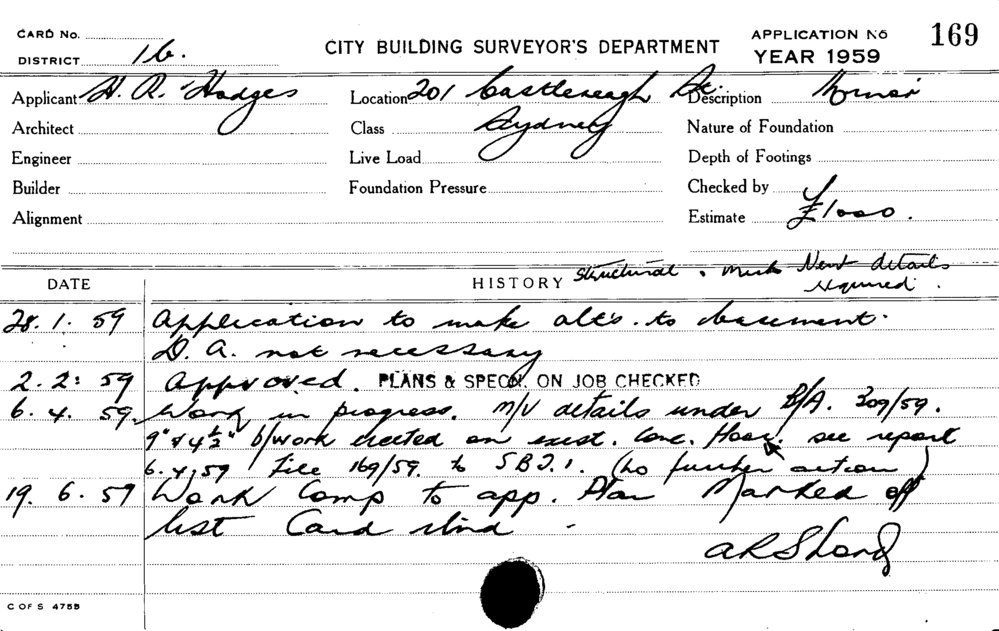 CARD No.
DISTRICT 16.
CITY BUILDING SURVEYOR'S DEPARTMENT
APPLICATION No 169
YEAR 1959
Applicant H. R. Hodges
Location 201 Castlereagh St.
Description Minor
Architect
Class Sydney
Nature of Foundation
Engineer
Live Load
Depth of Footings
Builder
Foundation Pressure
Checked by
Alignment
Estimate £1000.
DATE
HISTORY Structural & Mech Vent details
required.
28. 1. 59 Application to make alt's. to basement.
D. A. not necessary
2. 2: 59 Approved. PLANS & SPECN. ON JOB CHECKED
6. 4. 59. Work in progress. M/V details under B/A. 309/59.
9" & 4½" b/work erected on exist. conc. floor. see report
6.4.59 File 169/59. to SBI.1. (no further action)
19. 6. 59 Work Comp to app. Plan Marked off
list Card
C OF S 475B